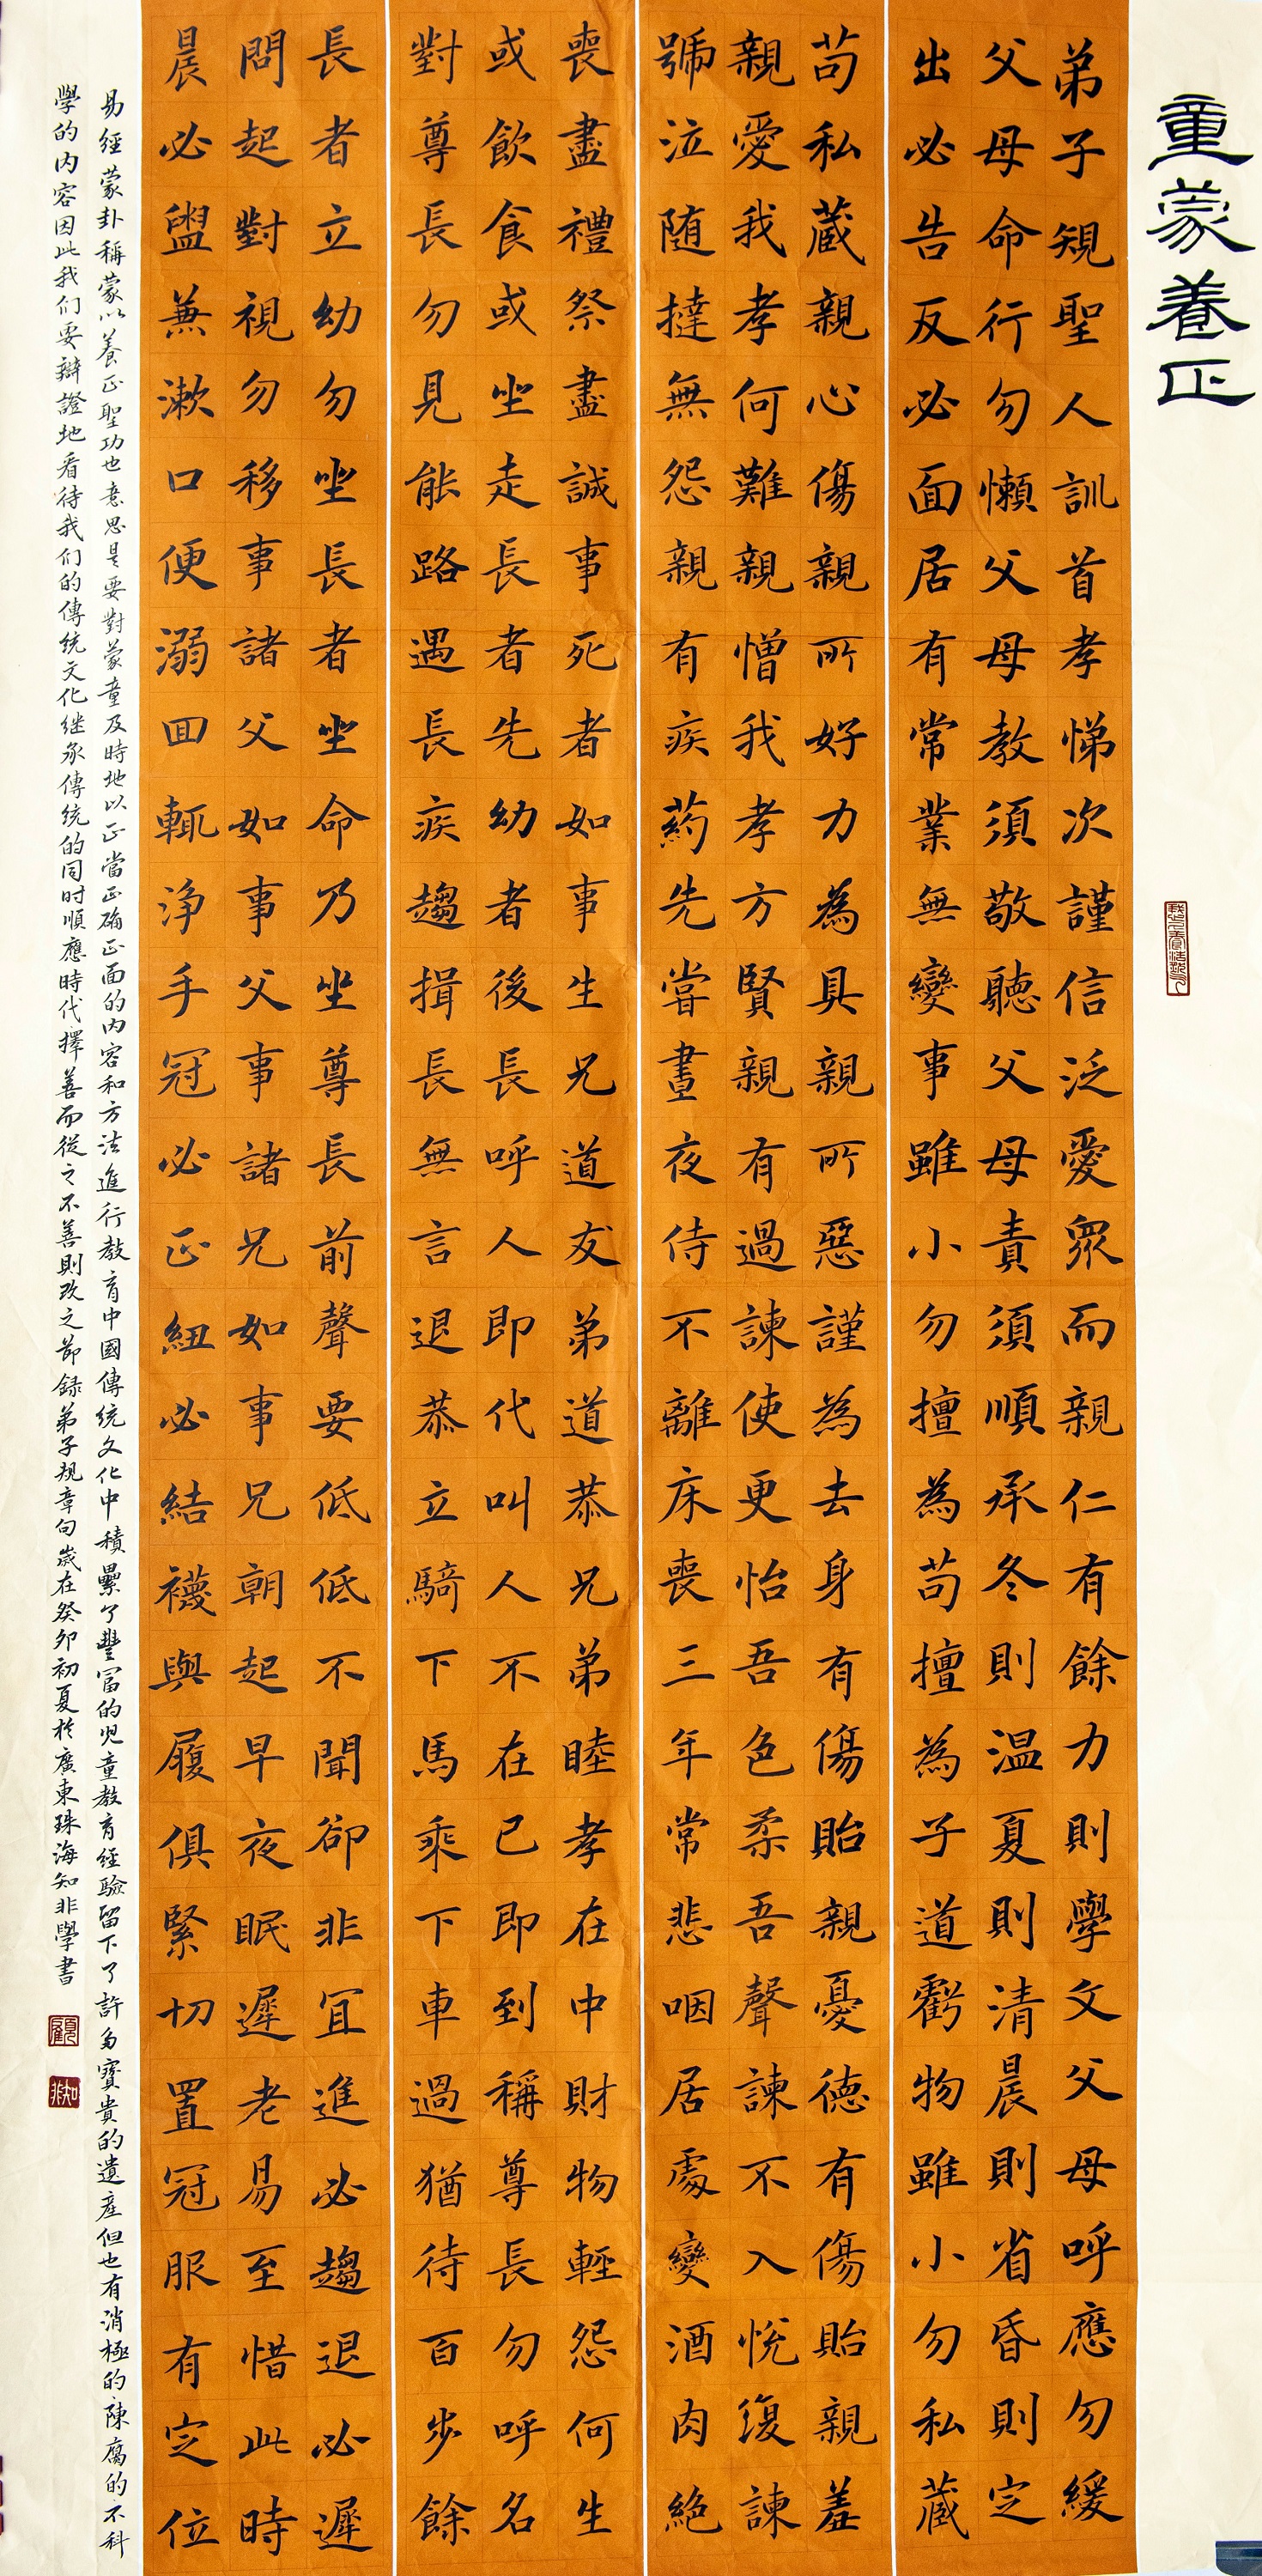 童蒙養正
弟子規聖人訓首孝悌次謹信泛愛眾而親仁有餘力則學文父母呼應勿緩
父母命行勿懶父母教須敬聽父母責須順承冬則温夏則清晨則省昏則定
出必告反必面居有常業無變事雖小勿擅為苟擅為子道虧物雖小勿私藏
苟私藏親心傷親所好力為具親所惡謹為去身有傷貽親憂德有傷貽親羞
親愛我孝何難親憎我孝方賢親有過諫使更怡吾色柔吾聲諫不入悅復諫
號泣随撻無怨親有疾药先嘗晝夜侍不離床喪三年常悲咽居處變酒肉絕
喪盡禮祭盡誠事死者如事生兄道友弟道恭兄弟睦孝在中財物輕怨何生
或飲食或坐走長者先幼者後長呼人即代叫人不在己即到稱尊長勿呼名
對尊長勿見能路遇長疾趨揖長無言退恭立騎下馬乘下車過猶待百步餘
長者立幼勿坐長者坐命乃坐尊長前聲要低低不聞卻非宜進必趨退必遲
問起對視勿移事諸父如事父事諸兄如事兄朝起早夜眠遲老易至惜此時
晨必盥兼漱口便溺回輒淨手冠必正紐必結襪與履俱緊切置冠服有定位
易經蒙卦稱蒙以養正聖功也意思是要對蒙童及時地以正當正确正面的内容和方法進行教育中國傳統文化中積纍了豐富的児童教育經驗留下了許多寶貴的遺産但也有消極的陳腐的不科
學的内容因此我们要辯證地看待我们的傳統文化继承傳統的同时順應時代擇善而從之不善則改之節録弟子规章句歲在癸卯初夏於廣東珠海知非學書